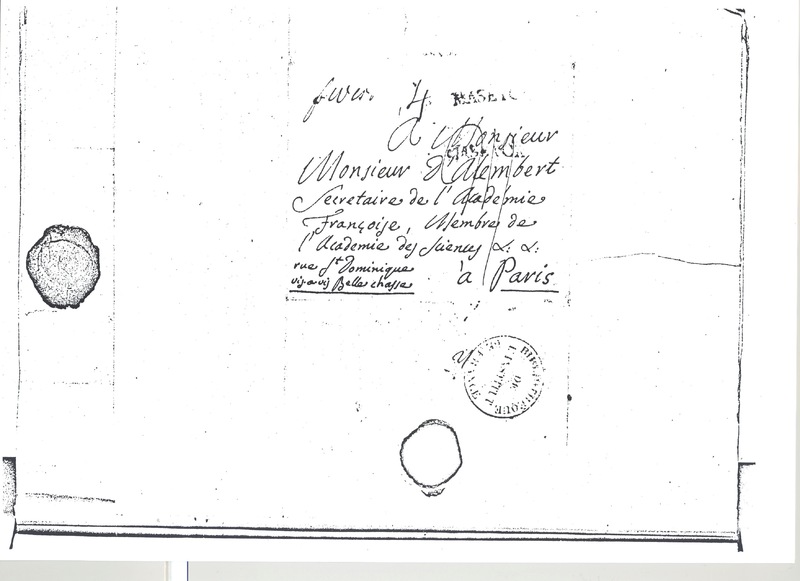 4
A Monsieur
Monsieur D'Alembert
Secretaire de l'Académie
Françoise, Membre de
l'Academie des Sciences &. &.
rue St Dominique
vis-a-vis Belle chasse
à Paris
BIBLIOTHEQUE
DE
L'INSTITUT